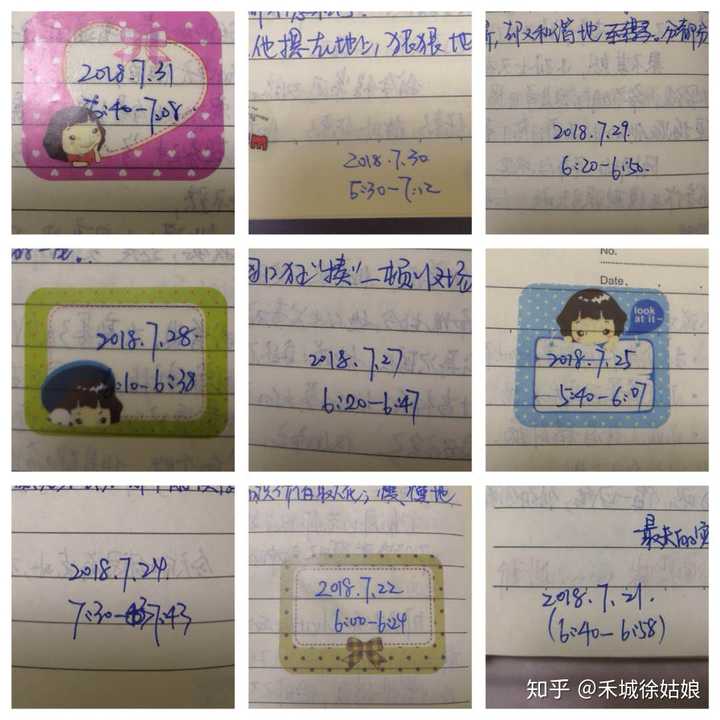 2018.7.31
5:40-7:08
他摆在地上,狠狠地
2018.7.30
5:30-7:12
2018.7.29
6:20-6:50.
2018.7.28.
6:10-6:38
2018.7.27
6:20-6:47
No.
Date.
look
at it~
2018.7.25
5:40-6:07
2018.7.24.
7:30-7:43
慢慢地
2018.7.22
6:00-6:24
2018.7.21.
(6:40-6:58)
知乎 @禾城徐姑娘